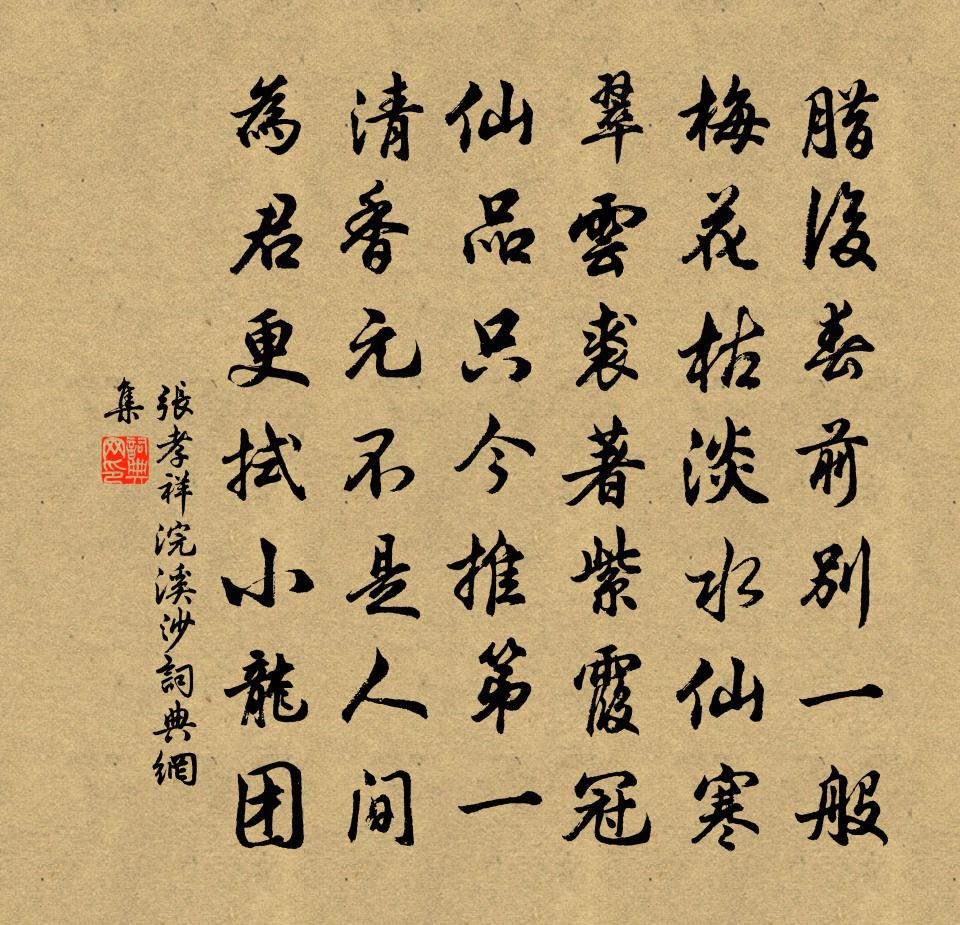 腊後春前别一般
梅花枯淡水仙寒
翠雲裘著紫霞冠
仙品只今推第一
清香元不是人间
為君更拭小龍团
張孝祥浣溪沙詞典網
集
詞典网印